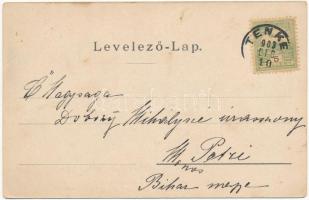 Levelező-Lap.
TENKE
903
10
Ő Nagysága
Mihályné úrasszony
M. Petri
Bihar megye